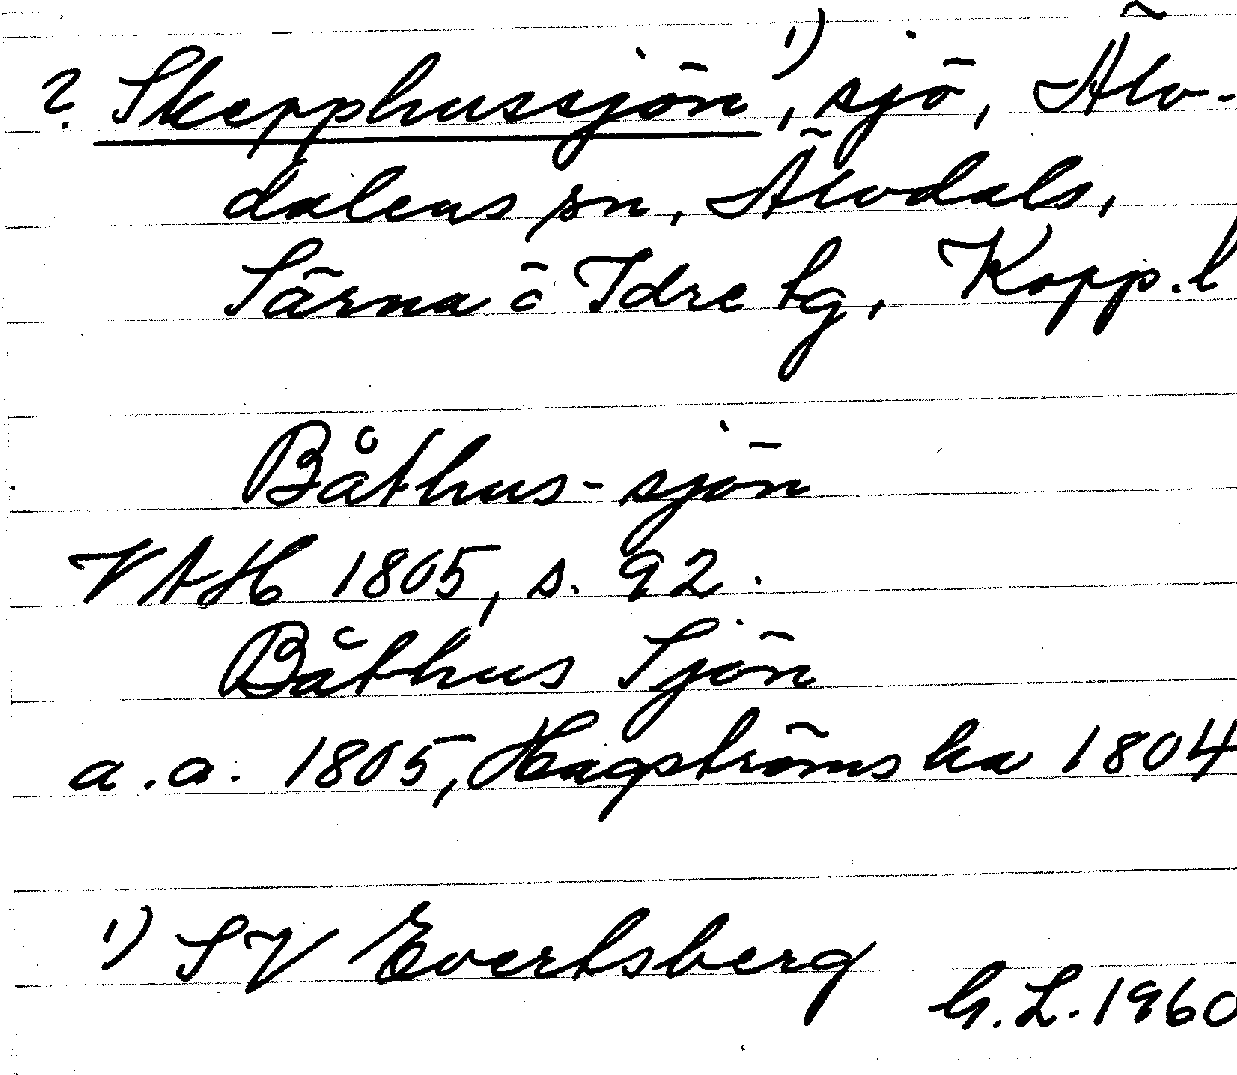 ? Skepphussjön ¹), sjö, Älv-
dalens sn, Älvdals,
Särna ö Idre tg, Kopp. l
Båthus-sjön
VAH 1805, s. 92.
Båthus Sjön
a.a. 1805, Hagströms ka 1804
¹) SV Evertsberg
G.L. 1960